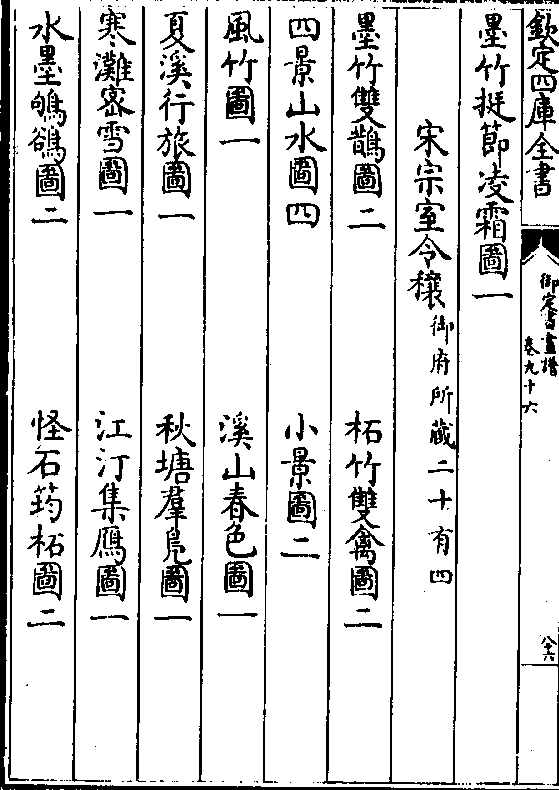 欽定四庫全書
御定書畫譜
卷九十六
八十六
墨竹挺節凌霜圖一
宋宗室令穰御府所藏二十有四
墨竹雙鵲圖二 柘竹雙禽圖二
四景山水圖四 小景圖二
風竹圖一 溪山春色圖一
夏溪行旅圖一 秋塘羣鳧圖一
寒灘密雪圖一 江汀集鴈圖一
水墨鴝鵒圖二 怪石筠柘圖二